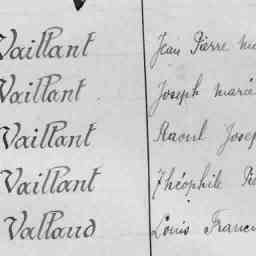 Vaillant Jean Pierre
Vaillant Joseph marie
Vaillant Raoul Josep
Vaillant Théophile
Vallaud Louis Franc